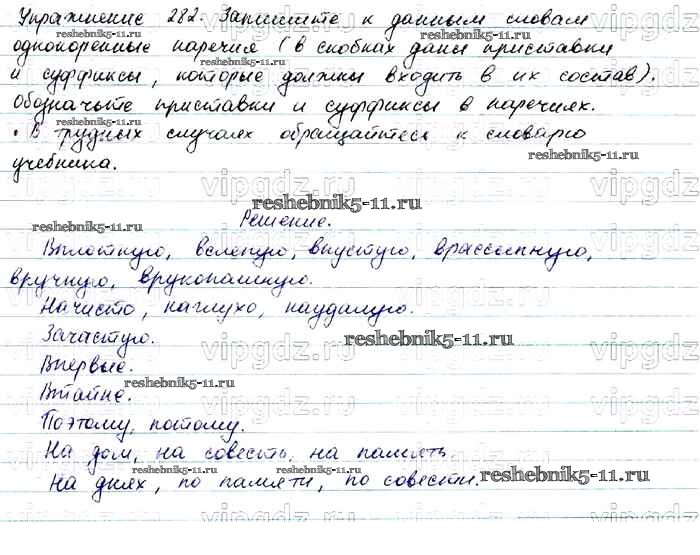 Упражнение 282. Запишите к данным словам
однокоренные наречия (в скобках даны приставки
и суффиксы, которые должны входить в их состав).
Обозначьте приставки и суффиксы в наречиях.
• В трудных случаях обращайтесь к словарю
reshebnik5-11.ru
reshebnik5-11.ru
учебника.
vipgdz.ru vipgdz.ru vipgdz.ru
reshebnik5-11.ru
reshebnik5-11.ru
Решение.
reshebnik5-11.ru
Вплотную, вслепую, впустую, врассыпную,
вручную, врукопашную.
Начисто, наглухо, наудалую.
Зачастую.
reshebnik5-11.ru
vipgdz.ru vipgdz.ru vipgdz.ru
Впервые.
reshebnik5-11.ru
Втайне.
Поэтому, потому.
На дом, на совесть, на память.
reshebnik5-11.ru reshebnik5-11.ru reshebnik5-11.ru
На днях, по памяти, по совести.
vipgdz.ru vipgdz.ru vipgdz.ru